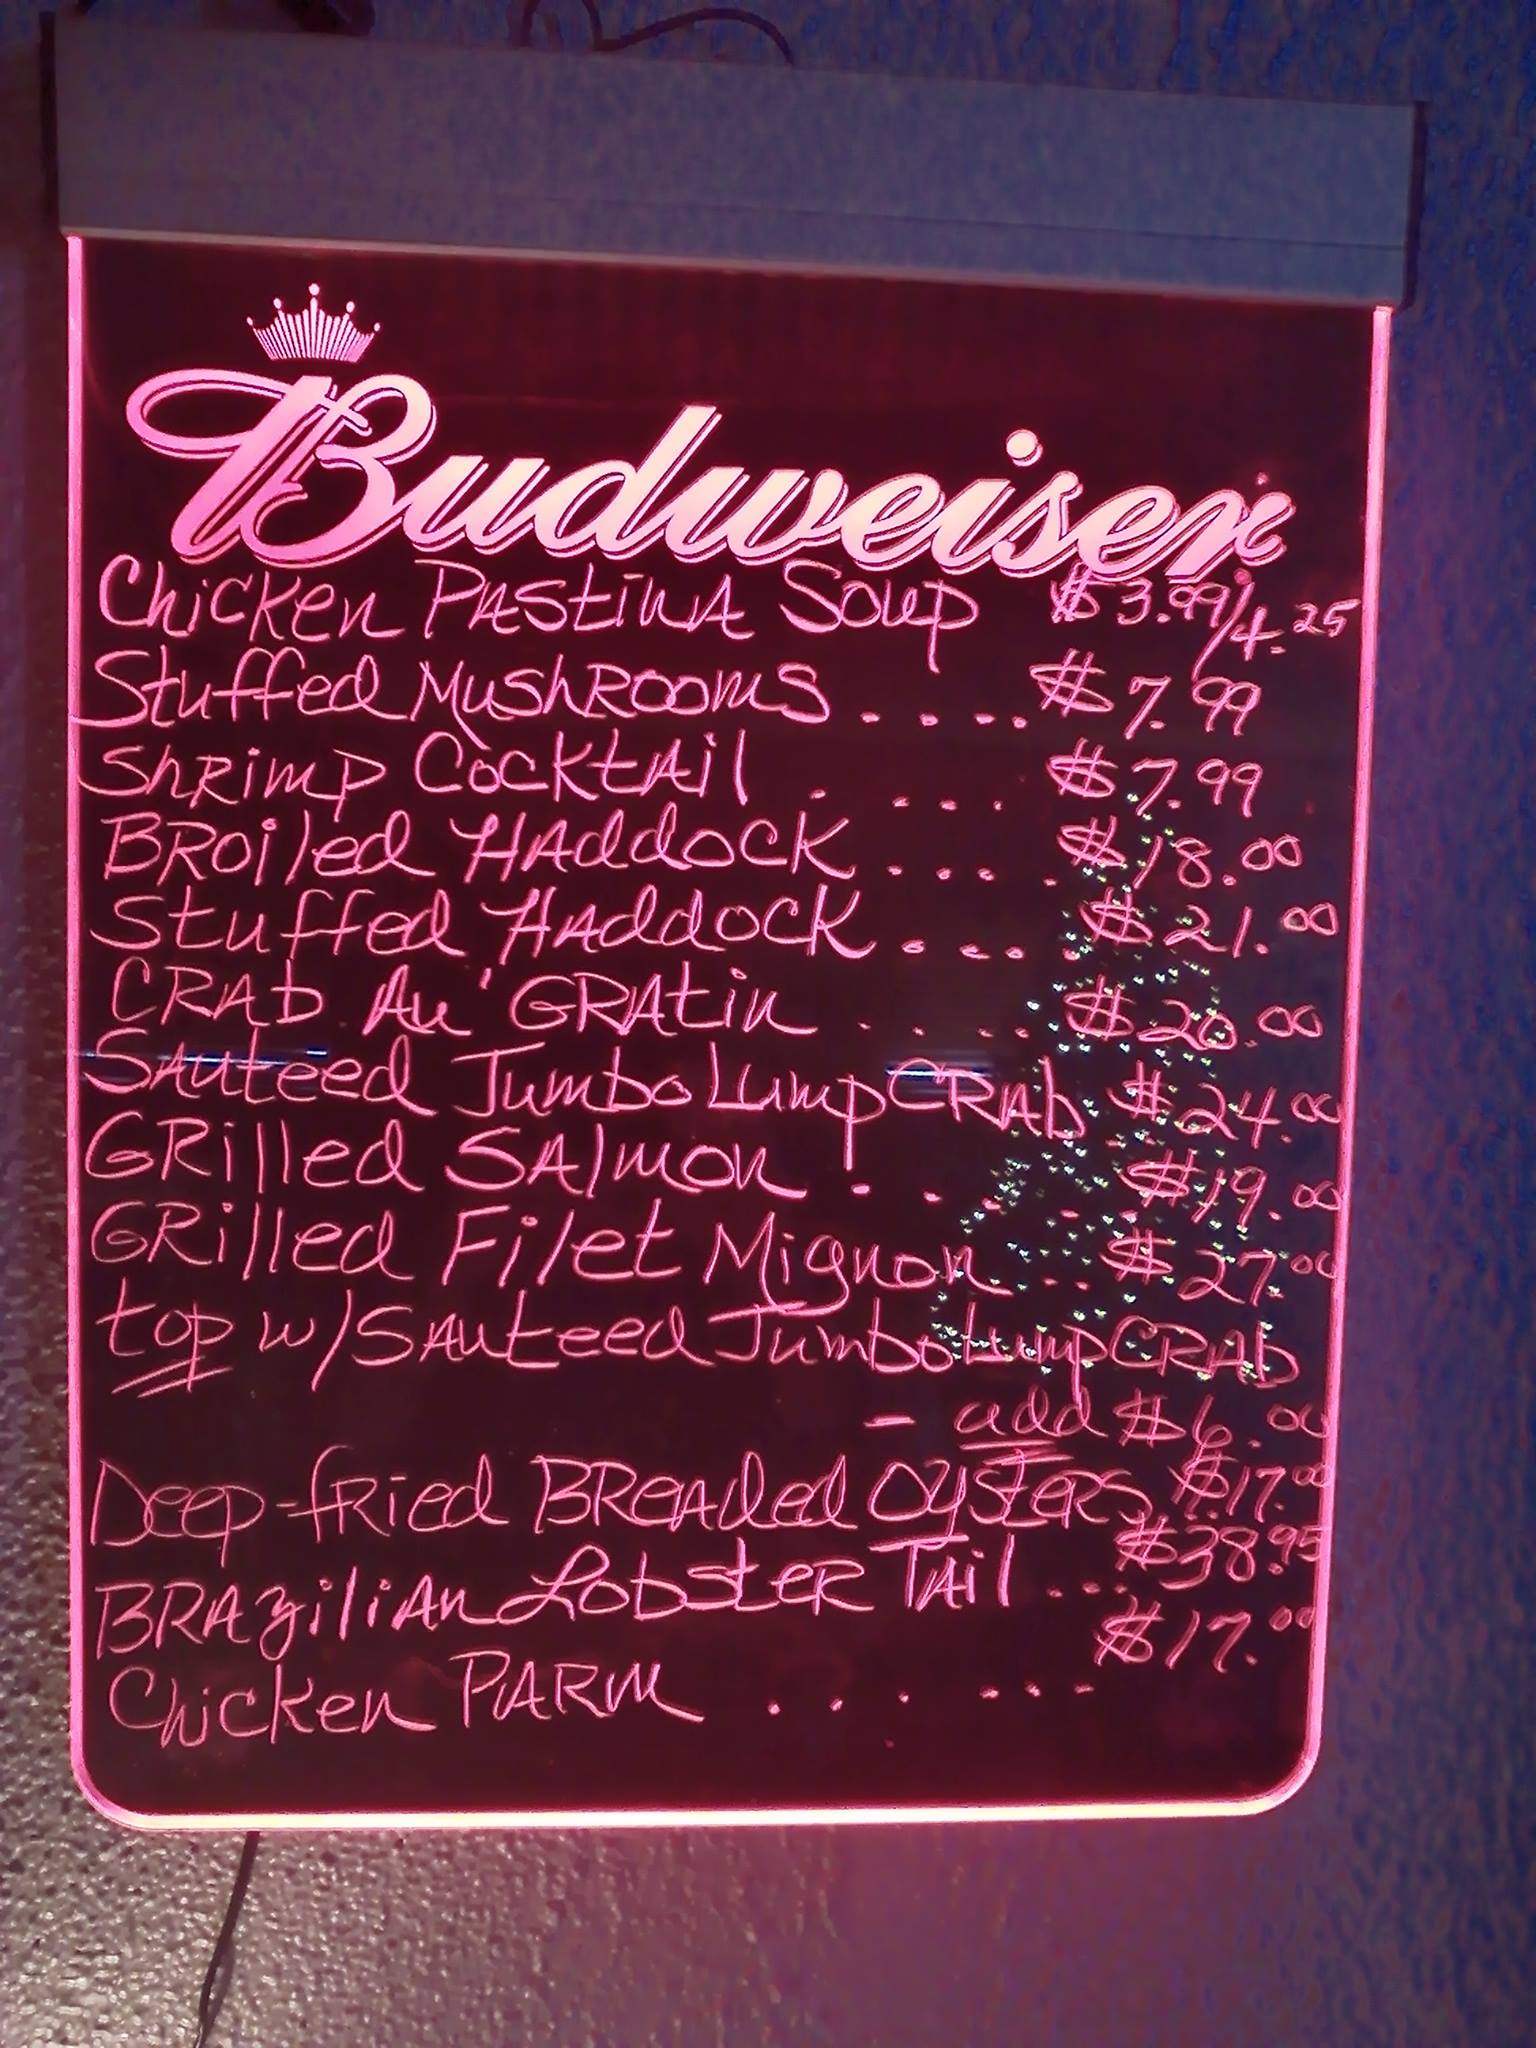 Budweiser
Chicken Pastina Soup $3.99/4.25
Stuffed Mushrooms .... $7.99
Shrimp Cocktail .... $7.99
Broiled Haddock .... $18.00
Stuffed Haddock .... $21.00
Crab Au' Gratin .... $20.00
Sauteed Jumbo Lump Crab $24.00
Grilled Salmon .... $19.00
Grilled Filet Mignon .. $27.00
top w/Sauteed Jumbo Lump Crab
- add $6.00
Deep-fried Breaded Oysters $17.00
Brazilian Lobster Tail ... $38.95
Chicken Parm ...... $17.00